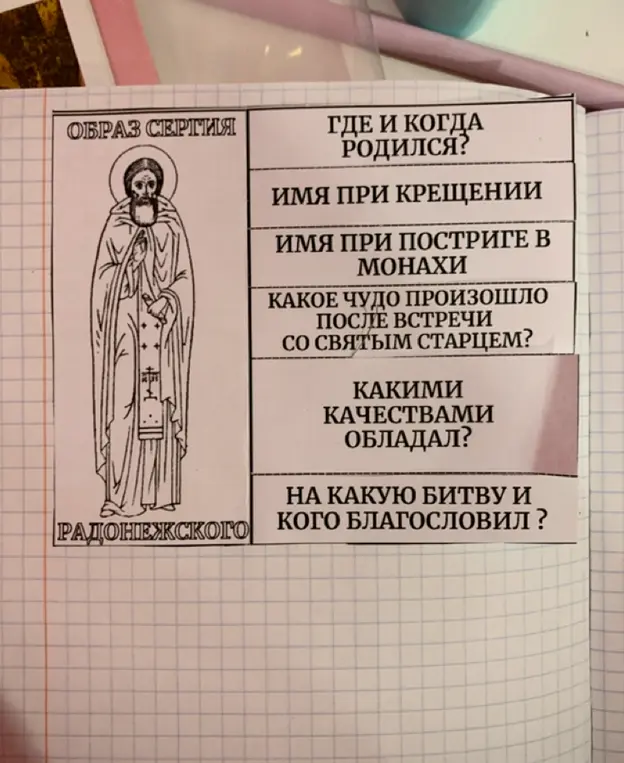 ОБРАЗ СЕРГИЯ
РАДОНЕЖСКОГО
ГДЕ И КОГДА
РОДИЛСЯ?
ИМЯ ПРИ КРЕЩЕНИИ
ИМЯ ПРИ ПОСТРИГЕ В
МОНАХИ
КАКОЕ ЧУДО ПРОИЗОШЛО
ПОСЛЕ ВСТРЕЧИ
СО СВЯТЫМ СТАРЦЕМ?
КАКИМИ
КАЧЕСТВАМИ
ОБЛАДАЛ?
НА КАКУЮ БИТВУ И
КОГО БЛАГОСЛОВИЛ ?